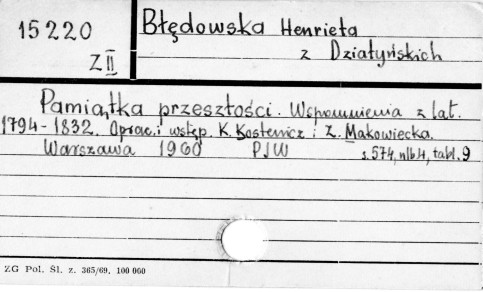 15220
Z II
Błędowska Henrieta
z Działyńskich
Pamiątka przeszłości. Wspomnienia z lat.
1794-1832. Oprac. i wstęp. K. Kostenicz i Z. Makowiecka.
Warszawa 1960 PJW s. 574, nlb. 4, tabl. 9
ZG Pol. Śl. z. 365/69. 100 000